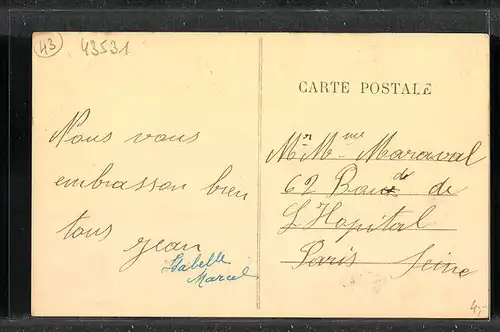 43
43531
Nous vous
embrasson bien
tous Jean
Isabelle
Marcel
CARTE POSTALE
Mr Mme Maraval
62 Boud de
L'Hopital
Paris Seine
4,-